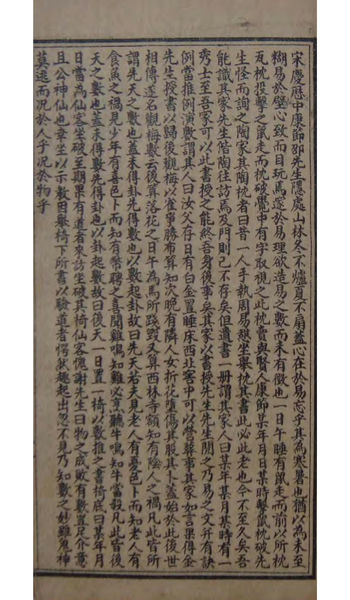 宋慶歷中康節邵先生隱處山林冬不爐夏不扇蓋心在於易忘乎其為寒暑也猶以為未至
糊易於壁心致而目玩焉邃於易理欲造易之數而未有徵也一日午睡有鼠走而前以所枕
瓦枕投擊之鼠走而枕破覺中有字取視之此枕賣與賢人康節某年月日某時擊鼠枕破先
生怪而詢之陶家其陶枕者曰昔一人手執周易憇坐舉枕其書此必此老也今不至久矣吾
能識其家先生偕陶往訪焉及門則已不存矣但遺書一冊謂其家人曰某年某月某時有一
秀士至吾家可以此書授之能終吾身後事矣其家以書授先生先生閱之乃易之文并有訣
例當推例演數謂其人曰汝父存日有白金置睡床西北窖中可以營葬事其家如言果得金
先生授書以歸後觀梅以雀爭勝布算知次晚有隣人女折花墮傷其股其卜蓋始於此後世
相傳遂名觀梅數云後算落花之日午為馬所踐毀又算西林寺額知有陰人之禍凡此皆所
謂先天之數也蓋未得卦先得數也以數起卦故曰先天若夫見老人有憂色卜而知老人有
食魚之禍見少年有喜色卜而知有幣聘之喜聞雞鳴知雞必烹聽牛鳴知牛當殺凡此皆後
天之數也蓋未得數先得卦也以卦起數故曰後天一日置一椅以數推之書椅底曰某年月
日當為仙客坐破至期果有道者來訪坐破其椅仙客愧謝先生曰物之成敗有數豈足介意
且公神仙也幸坐以示教因舉椅下所書以驗道者愕然趨起出忽不見乃知數之妙雖鬼神
莫逃而況於人乎況於物乎